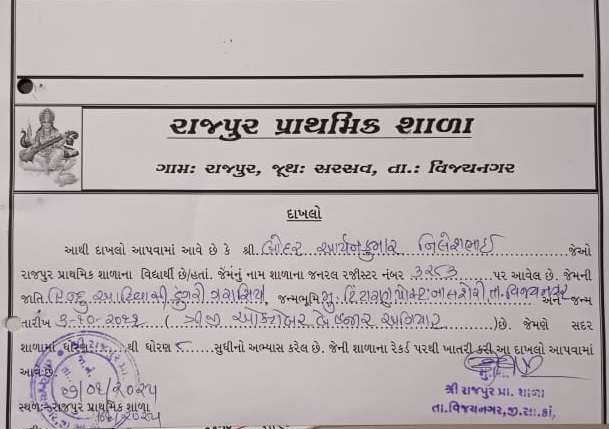 રાજપુર પ્રાથમિક શાળા
ગામઃ રાજપુર, જૂથઃ સરસવ, તા.: વિજયનગર
દાખલો
આથી દાખલો આપવામાં આવે છે કે શ્રી આર્યનકુમાર નિલેશભાઈ જેઓ
રાજપુર પ્રાથમિક શાળાના વિદ્યાર્થી છે/હતાં. જેમનું નામ શાળાના જનરલ રજીસ્ટર નંબર પર આવેલ છે. જેમની
જાતિ હિન્દુ આદિવાસી ડુંગરી ગરાસિયા જન્મભૂમિ મુ. પોસ્ટઃ તા. વિજયનગર અને જન્મ
તારીખ 3-૧૦-૨૦૧૧ ( ત્રીજી ઓક્ટોબર બે હજાર અગિયાર )છે. જેમણે સદર
શાળામાં ધોરણ થી ધોરણ ૮ સુધીનો અભ્યાસ કરેલ છે. જેની શાળાના રેકર્ડ પરથી ખાતરી કરી આ દાખલો આપવામાં
આવે છે.
સ્થળઃ રાજપુર પ્રાથમિક શાળા
શ્રી રાજપુર પ્રા. શાળા
તા.વિજયનગર,જી.સા.કાં,